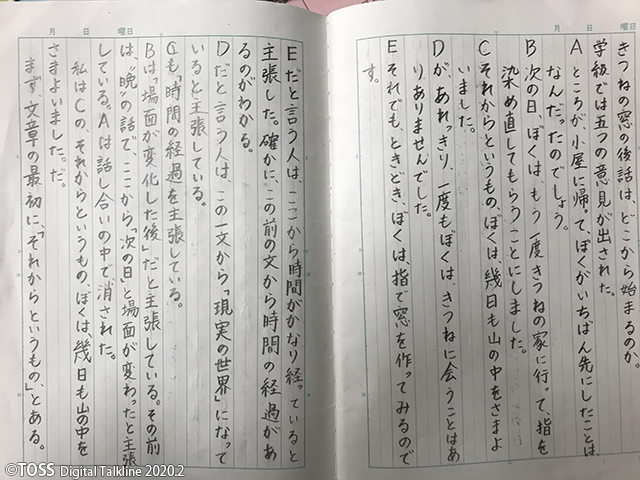 月　日　曜日
きつねの窓の後話は、どこから始まるのか。
学級では五つの意見が出された。
Aところが、小屋に帰って、ぼくがいちばん先にしたことは、
なんだったのでしょう。
B次の日、ぼくは、もう一度きつねの家に行って、指を
染め直してもらうことにしました。
Cそれからというもの、ぼくは、幾日も山の中をさまよ
いました。
Dが、あれっきり、一度もぼくは、きつねに会うことはあ
りありませんでした。
Eそれでも、ときどき、ぼくは、指で窓を作ってみるので
す。
月　日　曜日
Eだと言う人は、ここから時間がかなり経っていると
主張した。確かに、この前の文から時間の経過があ
るのがわかる。
Dだと言う人は、この一文から「現実の世界」になって
いると主張している。
Cも「時間の経過を主張している。
Bは「場面が変化した後」だと主張している。その前
は、“晩”の話で、ここから「次の日」と場面が変わったと主張
している。Aは話し合いの中で消された。
私はCの、それからというもの、ぼくは、幾日も山の中を
さまよいました。だ。
まず、文章の最初に、「それからというもの、」とある。
©TOSS Digital Talkline 2020.2